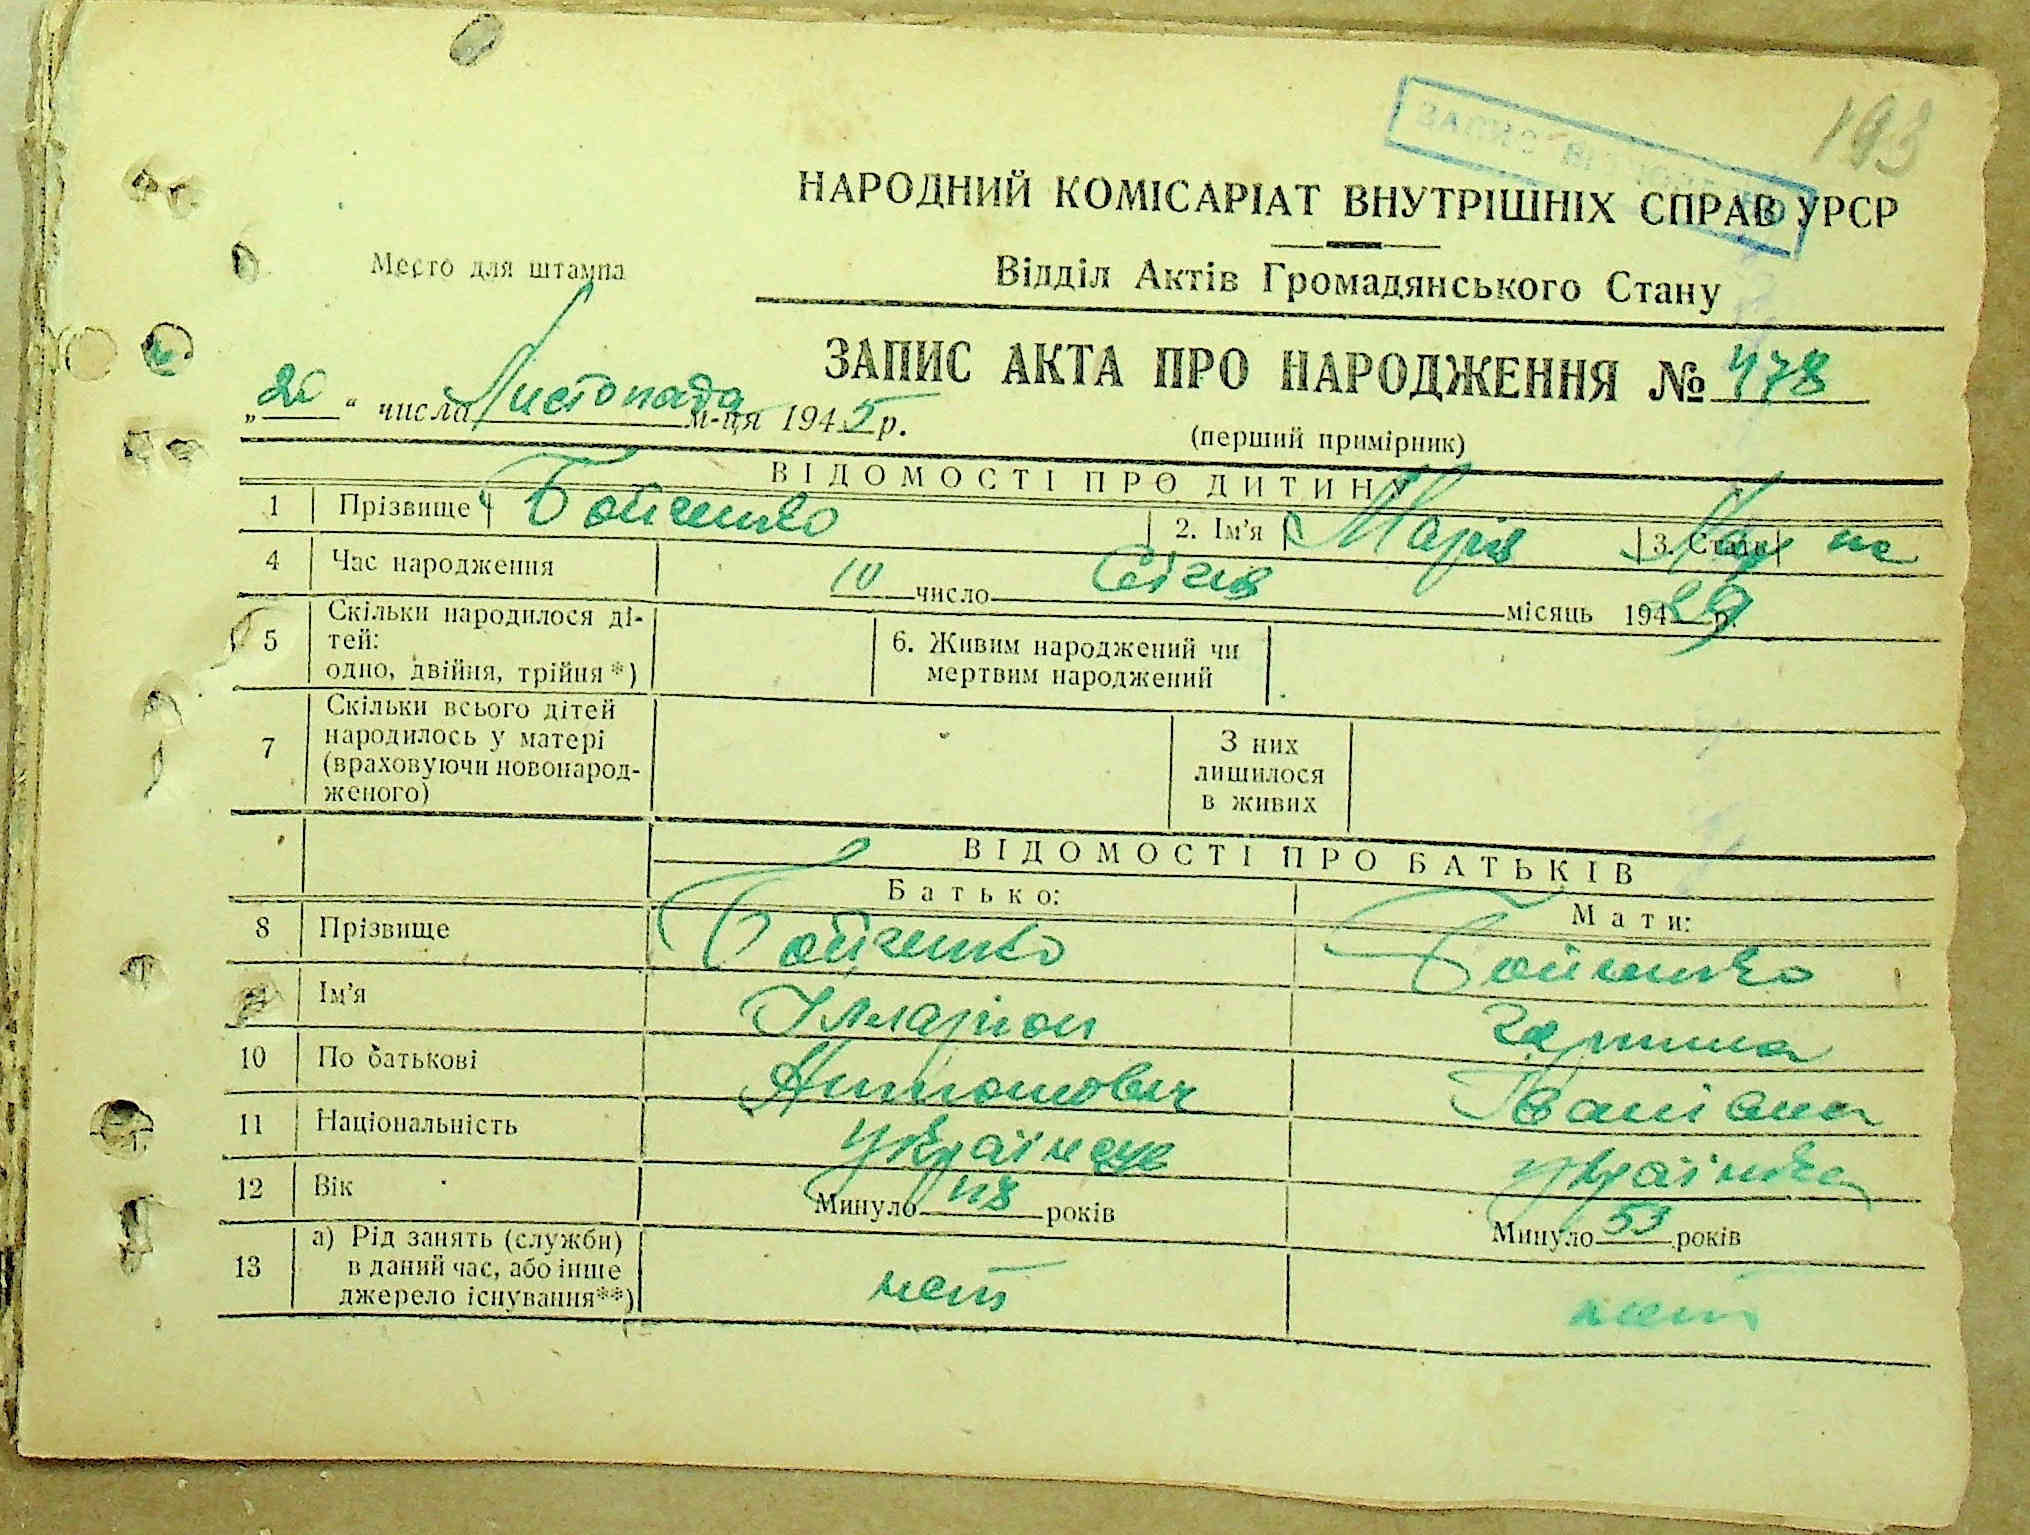 193
ЗАПИС ВІДНОВЛЕНО
НАРОДНИЙ КОМІСАРІАТ ВНУТРІШНІХ СПРАВ УРСР
Место для штампа
Відділ Актів Громадянського Стану
ЗАПИС АКТА ПРО НАРОДЖЕННЯ № 478
„ “ числа Листопада м-ця 1945 р.
(перший примірник)
ВІДОМОСТІ ПРО ДИТИНУ
1 Прізвище Бойченко 2. Ім'я Марія 3. Стать
4 Час народження 10 число Січня місяць 194 р.
5 Скільки народилося ді-
тей:
одно, двійня, трійня*)
6. Живим народжений чи
мертвим народжений
7 Скільки всього дітей
народилось у матері
(враховуючи новонарод-
женого)
З них
лишилося
в живих
ВІДОМОСТІ ПРО БАТЬКІВ
Батько: Мати:
8 Прізвище Бойченко Бойченко
Ім'я Ілларіон
10 По батькові Антонович Іванівна
11 Національність українець українка
12 Вік Минуло років Минуло 53 років
13 а) Рід занять (служби)
в даний час, або інше
джерело існування**)
нет нет